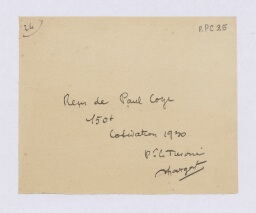 24
A.P.C 25
Reçu de Paul Coze
150f
Cotisation 1930
Pr Le Trésorier